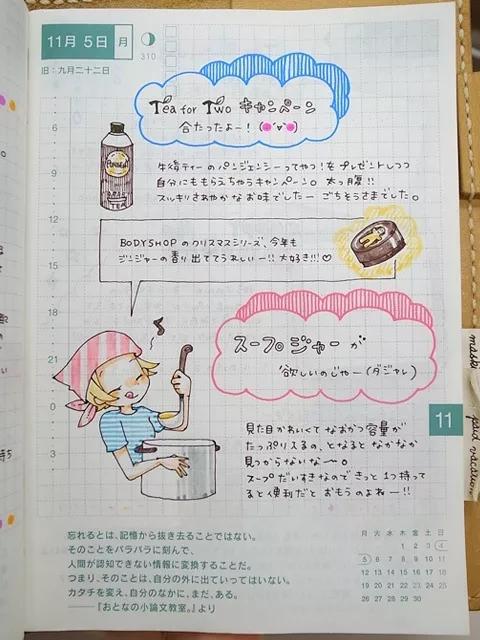 11月 5日 月
310
旧：九月二十二日
Tea for Two キャンペーン
合たったよー！
午後ティーの パンジェンシーってやつ！を プレゼントしつつ
自分にももらえちゃうキャンペーン。太っ腹!!
スッキリさわやかなお味でしたー ごちそうさまでした。
BODYSHOPのクリスマスシリーズ、今年も
ジンジャーの香り出ててうれしいー!! 大好き!!!♡
スープジャーが
欲しいのじゃー(ダジャレ)
見た目かわいくて なおかつ容量が
たっぷり入るの、となると なかなか
見つからないな〜。
スープだいすきなので きっと 1つ持って
ると便利だと おもうのよねー!!
6
9
12
15
18
21
0
3
11
忘れるとは、記憶から抜き去ることではない。
そのことをバラバラに刻んで、
人間が認知できない情報に変換することだ。
つまり、そのことは、自分の外に出ていってはいない。
カタチを変え、自分のなかに、まだ、ある。
――『おとなの小論文教室。』より
月 火 水 木 金 土 日
1 2 3 4
5 6 7 8 9 10 11
12 13 14 15 16 17 18
19 20 21 22 23 24 25
26 27 28 29 30